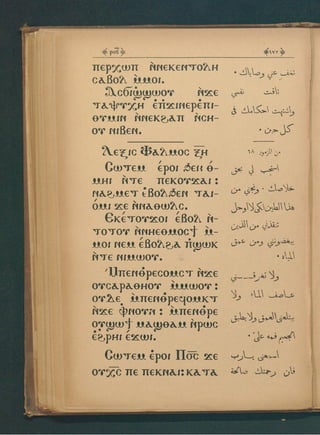 ⲣⲟⲃ̅
١٧٢
ⲡⲉⲣⲭⲱⲡ ⲛ̀ⲛⲉⲕⲉⲛⲧⲟⲗⲏ
ⲥⲁⲃⲟⲗ ⲙ̀ⲙⲟⲓ.
Ⲁⲥϭⲓϣϣⲱⲟⲩ ⲛ̀ϫⲉ
ⲧⲁⲯⲩⲭⲏ ⲉ̀ⲡ̀ϫⲓⲛⲉⲣⲉ̀ⲡⲓ-
ⲑⲩⲙⲓⲛ ⲛ̀ⲛⲉⲕϩⲁⲡ ⲛ̀ⲥⲏ-
ⲟⲩ ⲛⲓⲃⲉⲛ.
Ⲗⲉⲝⲓⲥ Ⲯⲁⲗⲙⲟⲥ ⲝ̅ⲏ̅
Ⲥⲱⲧⲉⲙ ⲉ̀ⲣⲟⲓ ϧⲉⲛ ⲟ̀-
ⲙⲏⲓ ⲛ̀ⲧⲉ ⲡⲉⲕⲟⲩϫⲁⲓ :
ⲛⲁϩⲙⲉⲧ ⲉ̀ⲃⲟⲗϧⲉⲛ ⲧⲁⲓ-
ⲟ̀ⲙⲓ ϫⲉ ⲛ̀ⲛⲁⲱⲗⲥ.
Ⲉⲕⲉ̀ⲧⲟⲩϫⲟⲓ ⲉ̀ⲃⲟⲗ ⲛ̀-
ⲧⲟⲧⲟⲩ ⲛ̀ⲛⲏⲉⲑⲙⲟⲥϯ ⲙ̀-
ⲙⲟⲓ ⲛⲉⲙ ⲉ̀ⲃⲟⲗϩⲁ ⲡ̀ϣⲱⲕ
ⲛ̀ⲧⲉ ⲛⲓⲙⲱⲟⲩ.
Ⲙ̀ⲡⲉⲛⲑ̀ⲣⲉϭⲟⲙⲥⲧ ⲛ̀ϫⲉ
ⲟⲩⲥⲁⲣⲁⲑⲏⲟⲩ ⲙ̀ⲙⲱⲟⲩ :
ⲟⲩⲇⲉ ⲙ̀ⲡⲉⲛⲑ̀ⲣⲉϥⲟⲙⲕⲧ
ⲛ̀ϫⲉ ⲫ̀ⲛⲟⲩⲛ : ⲙ̀ⲡⲉⲛⲑ̀ⲣⲉ
ⲟⲩϣⲱϯ ⲙⲁϣⲑⲁⲙ ⲛ̀ⲣⲱⲥ
ⲉ̀ϩⲣⲏⲓ ⲉ̀ϫⲱⲓ.
Ⲥⲱⲧⲉⲙ ⲉ̀ⲣⲟⲓ Ⲡⲟ̅ⲥ̅ ϫⲉ
ⲟⲩⲭ̅ⲥ̅ ⲡⲉ ⲡⲉⲕⲛⲁⲓ : ⲕⲁⲧⲁ
تخف عني وصاياك .
تاقت نفسي
واشتهت احكامك في
كل حين .
من المزمور ٦٨
استجب لي بحق
خلاصك . ونجني من
هذا الطين لكيلا اوحل
تنقذني من الذين
يبغضونني ومن عمق
المياه .
ولا تغرقني
عاصف الماء ولا
يبتلعني العمق ولا يطبق
الجحيم فمه علي .
اسمعني يا رب
فان رحمتك صالحة